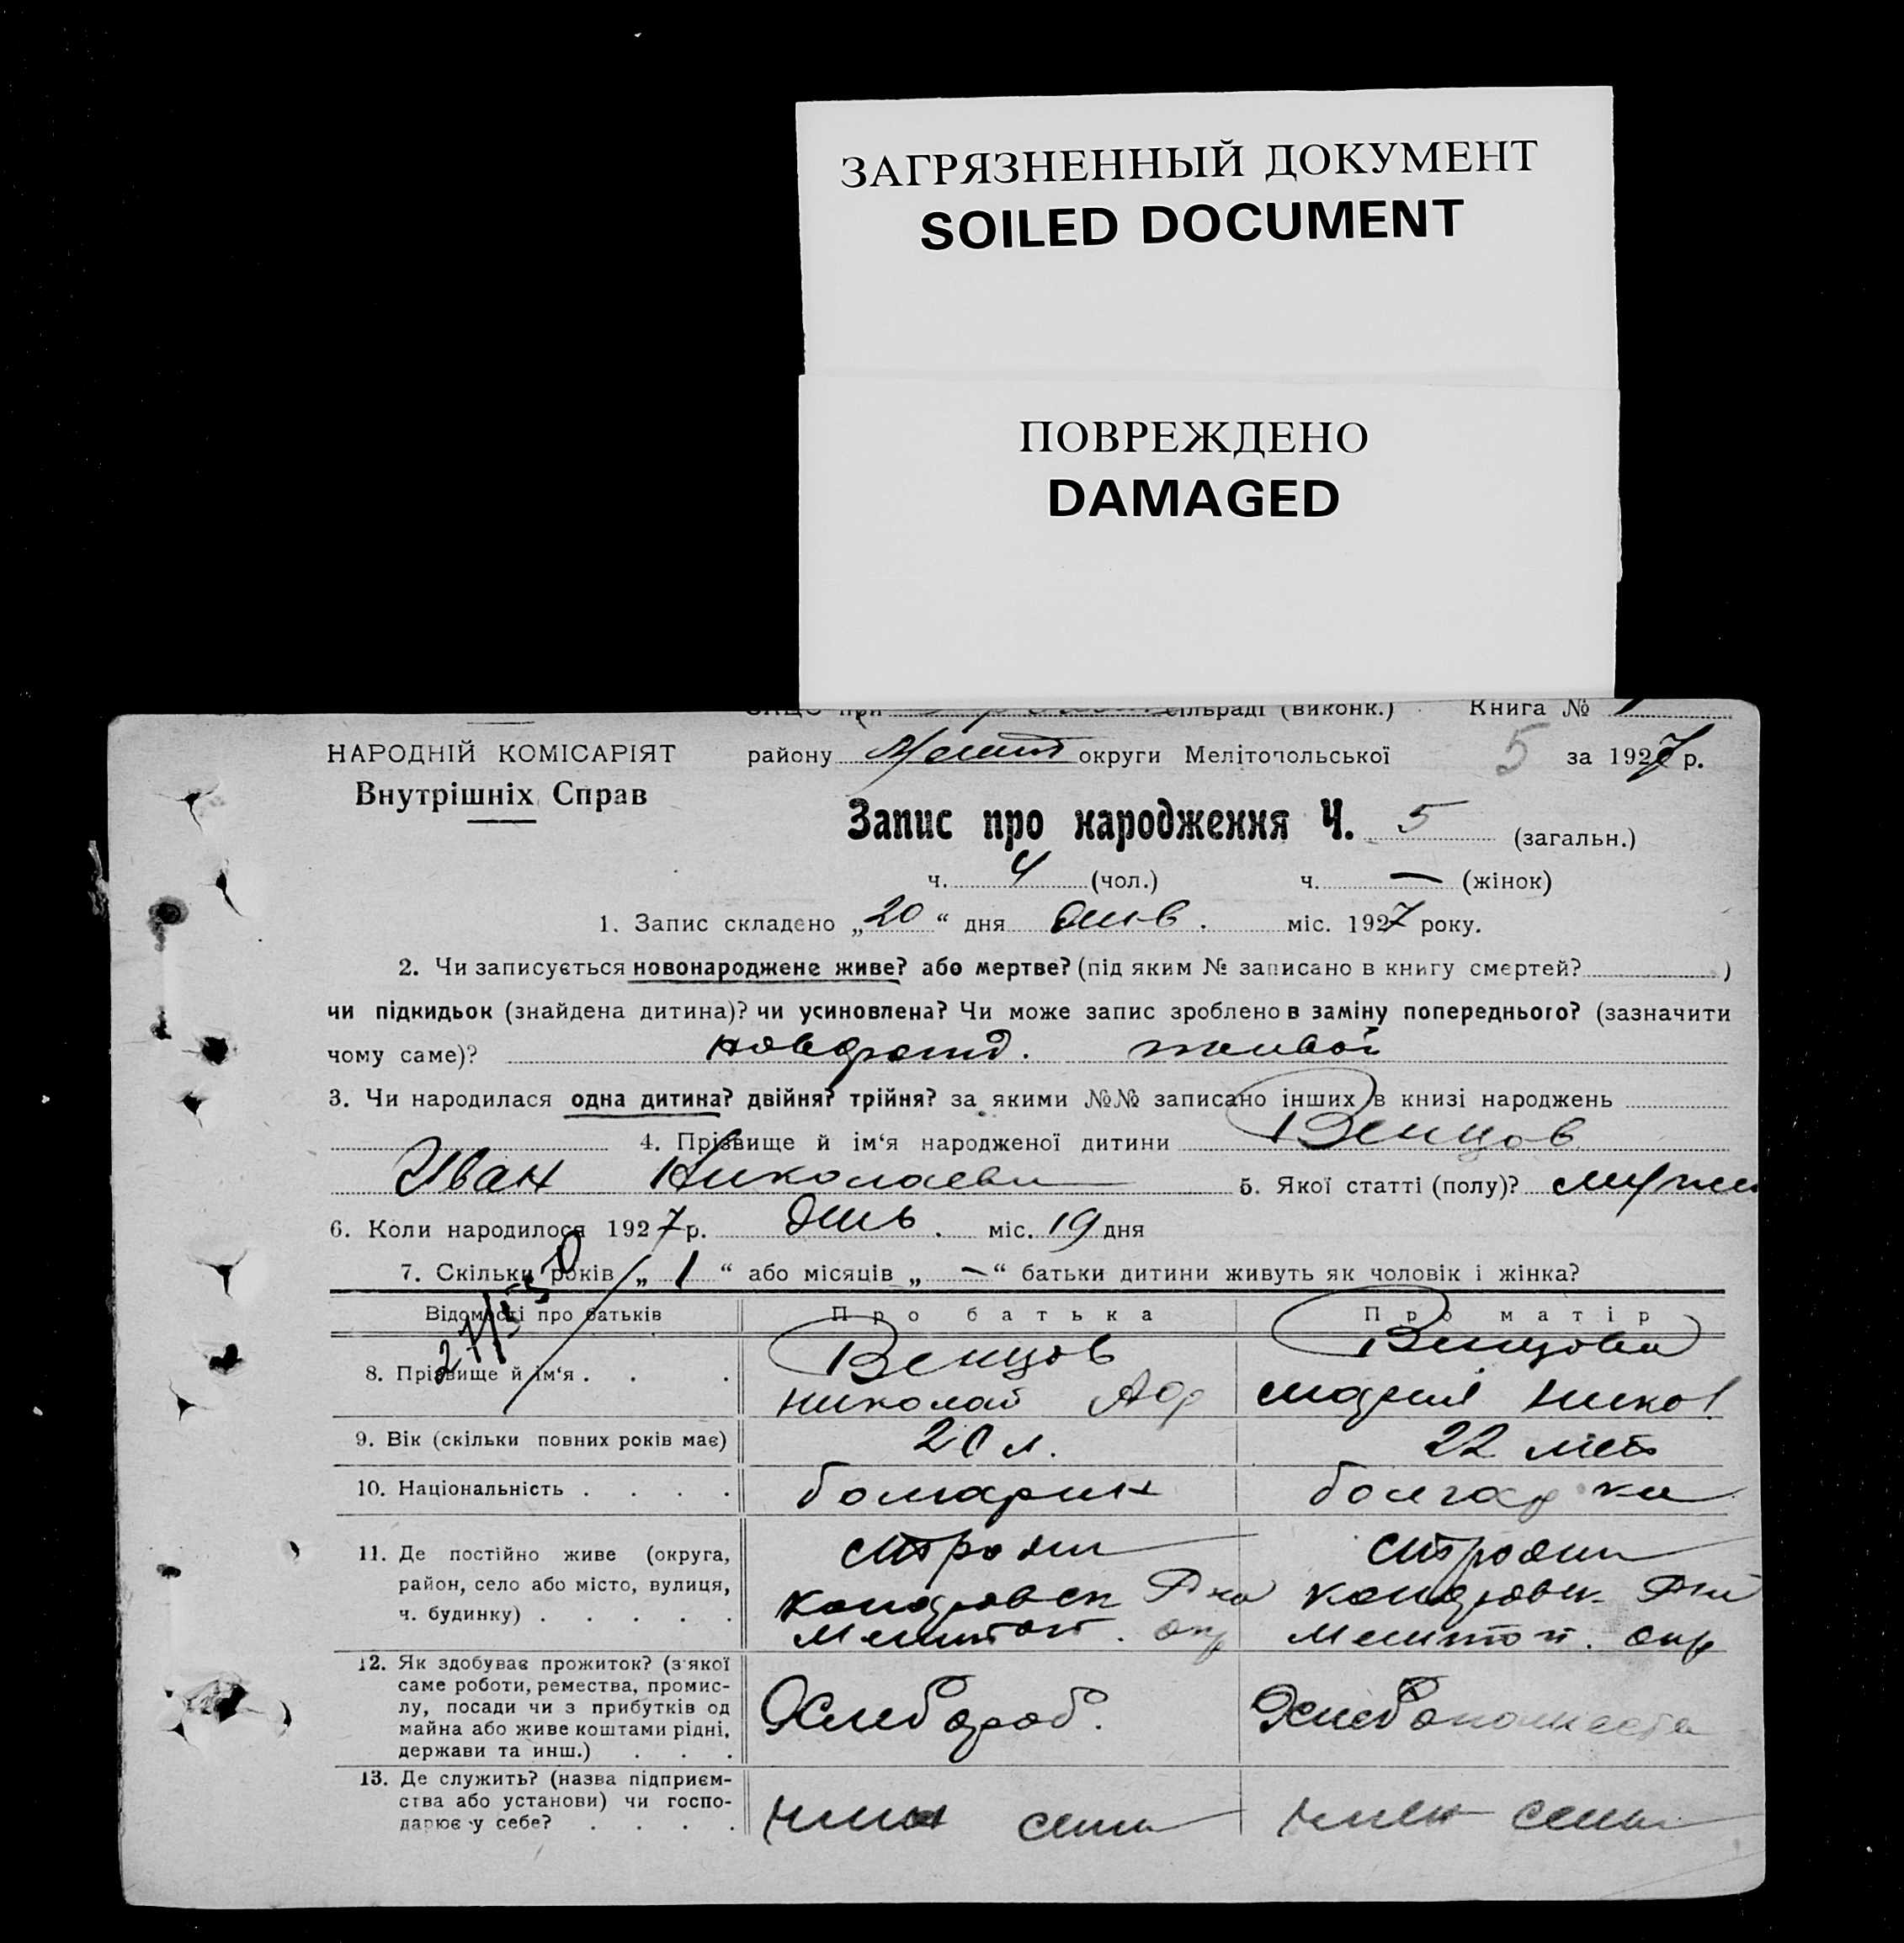 ЗАГРЯЗНЕННЫЙ ДОКУМЕНТ
SOILED DOCUMENT
ПОВРЕЖДЕНО
DAMAGED
при сільраді (виконк.) Книга №
НАРОДНІЙ КОМІСАРІЯТ
району округи Мелітопольської 5 за 1927 р.
Внутрішніх Справ
Запис про народження Ч. 5 (загальн.)
ч. 4 (чол.) ч. — (жінок)
1. Запис складено „20“ дня янв. міс. 1927 року.
2. Чи записується новонароджене живе? або мертве? (під яким № записано в книгу смертей? )
чи підкидьок (знайдена дитина)? чи усиновлена? Чи може запис зроблено в заміну попереднього? (зазначити
чому саме)? живой
3. Чи народилася одна дитина? двійня? трійня? за якими №№ записано інших в книзі народжень
4. Прізвище й ім‘я народженої дитини Венцов
Иван Николаеви 5. Якої статті (полу)? мужск
6. Коли народилося 1927 р. янв. міс. 19 дня
7. Скільки років „1“ або місяців „—“ батьки дитини живуть як чоловік і жінка?
Відомості про батьків Про батька Про матір
8. Прізвище й ім‘я . . . Венцов Венцова
Николай Мария Никол
9. Вік (скільки повних років має) 22 лет
10. Національність . . . . болгарин болгарка
11. Де постійно живе (округа,
район, село або місто, вулиця,
ч. будинку) . . . . .
Мелитоп. окр Мелитоп. окр
12. Як здобуває прожиток? (з якої
саме роботи, ремества, промис-
лу, посади чи з прибутків од
майна або живе коштами рідні,
держави та инш.) . . .
Хлебороб.
13. Де служить? (назва підприєм-
ства або установи) чи госпо-
дарює у себе? . . . .
член семи член семи